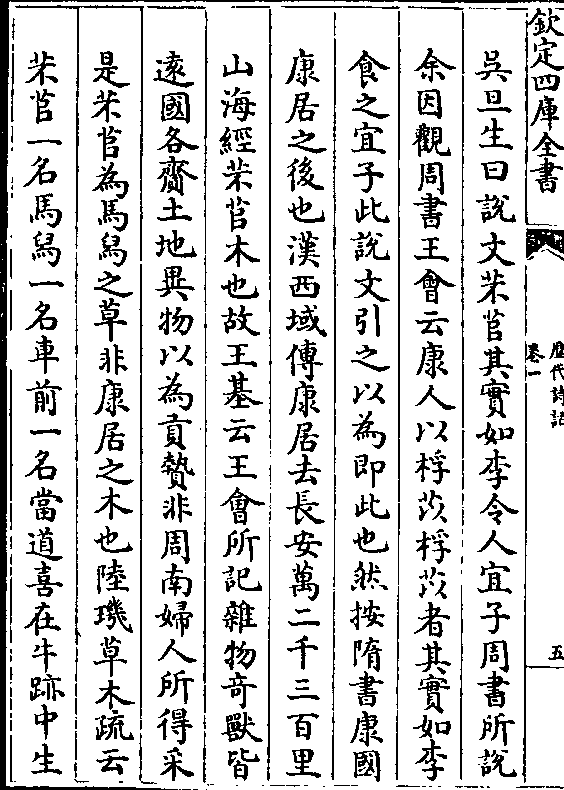 欽定四庫全書
歷代詩話
卷一
五
吳旦生曰說文芣苢其實如李令人宜子周書所說
余因觀周書王會云康人以桴苡桴苡者其實如李
食之宜子此說文引之以為即此也然按隋書康國
康居之後也漢西域傳康居去長安萬二千三百里
山海經芣苢木也故王基云王會所記雜物奇獸皆
遠國各齎土地異物以為貢贄非周南婦人所得采
是芣苢為馬舄之草非康居之木也陸璣草木疏云
芣苢一名馬舄一名車前一名當道喜在牛跡中生